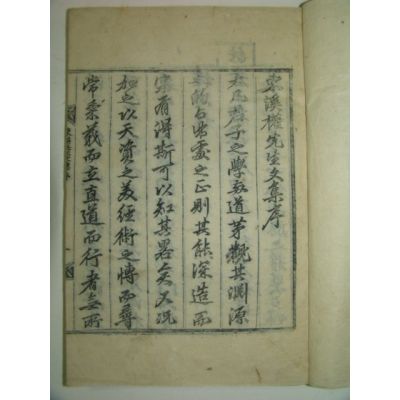 東溪權先生文集序
凡君子之學於道茅觀其淵源
之的與出處之正則其能深造而
實有得斯可以知其畧矣又况
加之以天資之美經術之博而尋
常秉義而立直道而行者無所